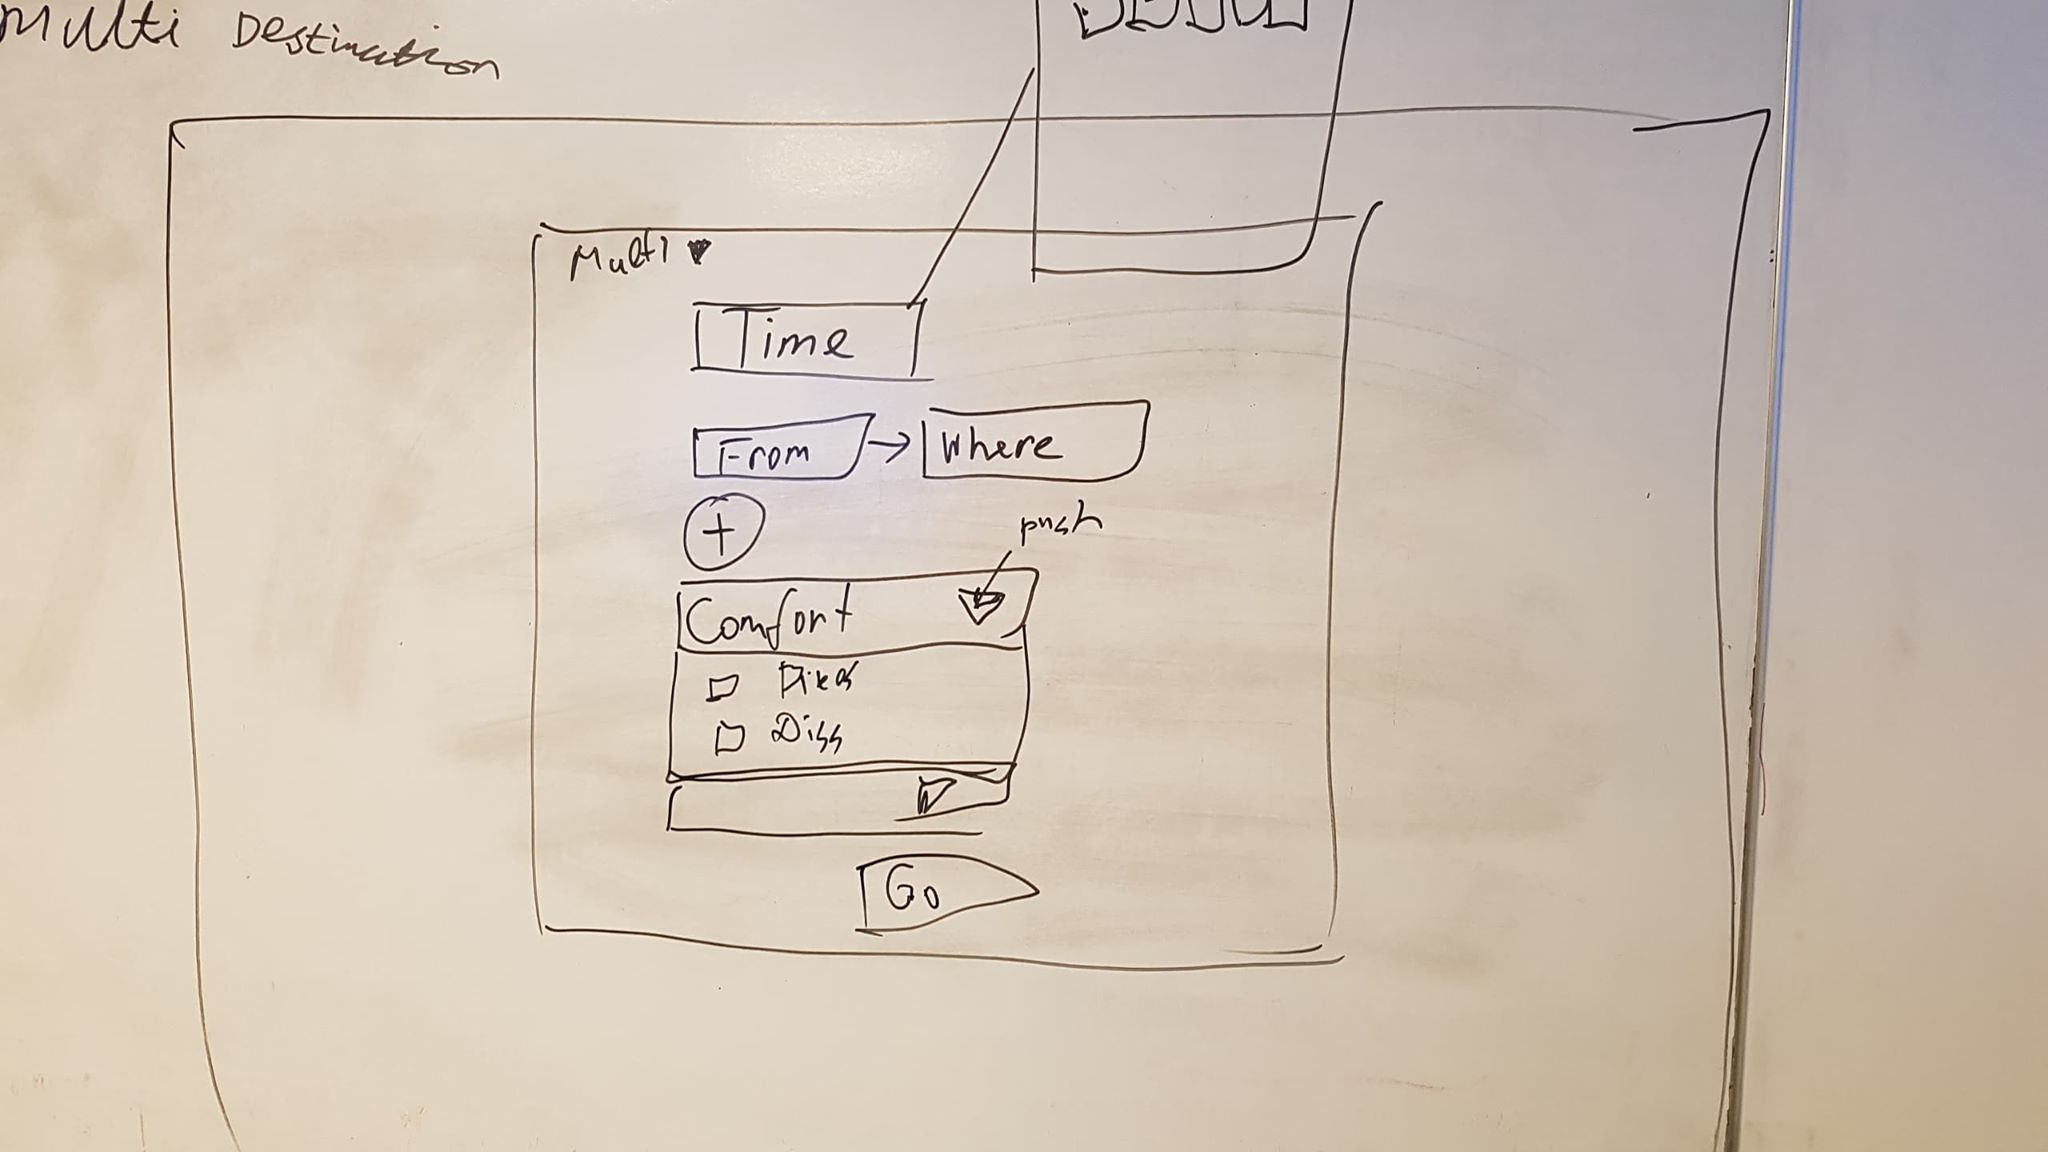 Multi Destination
Multi
Time
From → Where
+
push
Comfort
Diss
Go